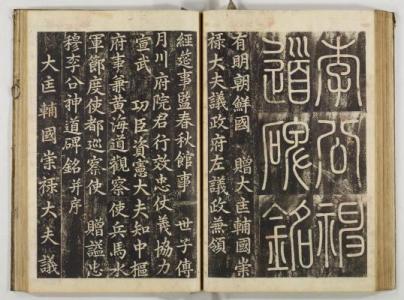 李公神
道碑銘
有明朝鮮國 贈大匡輔國崇
祿大夫議政府左議政兼領
經筵事監春秋館事 世子傅
月川府院君行效忠仗義協力
宣武 功臣資憲大夫知中樞
府事兼黃海道觀察使兵馬水
軍節度使都巡察使 贈諡忠
穆李公神道碑銘 并序
大匡輔國崇祿大夫議